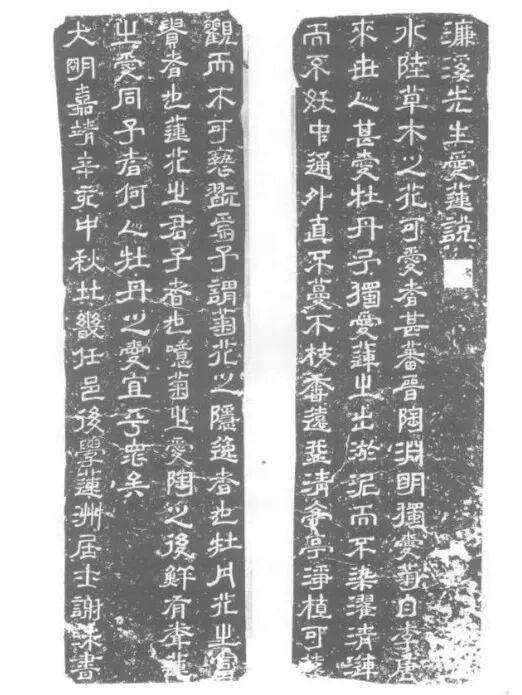 濂溪先生愛蓮說
水陸草木之花可愛者甚蕃晉陶淵明獨愛菊自李唐
來世人甚愛牡丹予獨愛蓮之出淤泥而不染濯清漣
而不妖中通外直不蔓不枝香遠益清亭亭淨植可遠
觀而不可褻翫焉予謂菊花之隱逸者也牡丹花之富
貴者也蓮花之君子者也噫菊之愛陶之後鮮有聞蓮
之愛同予者何人牡丹之愛宜乎眾矣
大明嘉靖辛亥中秋北畿任邑後學蓮州居士謝書